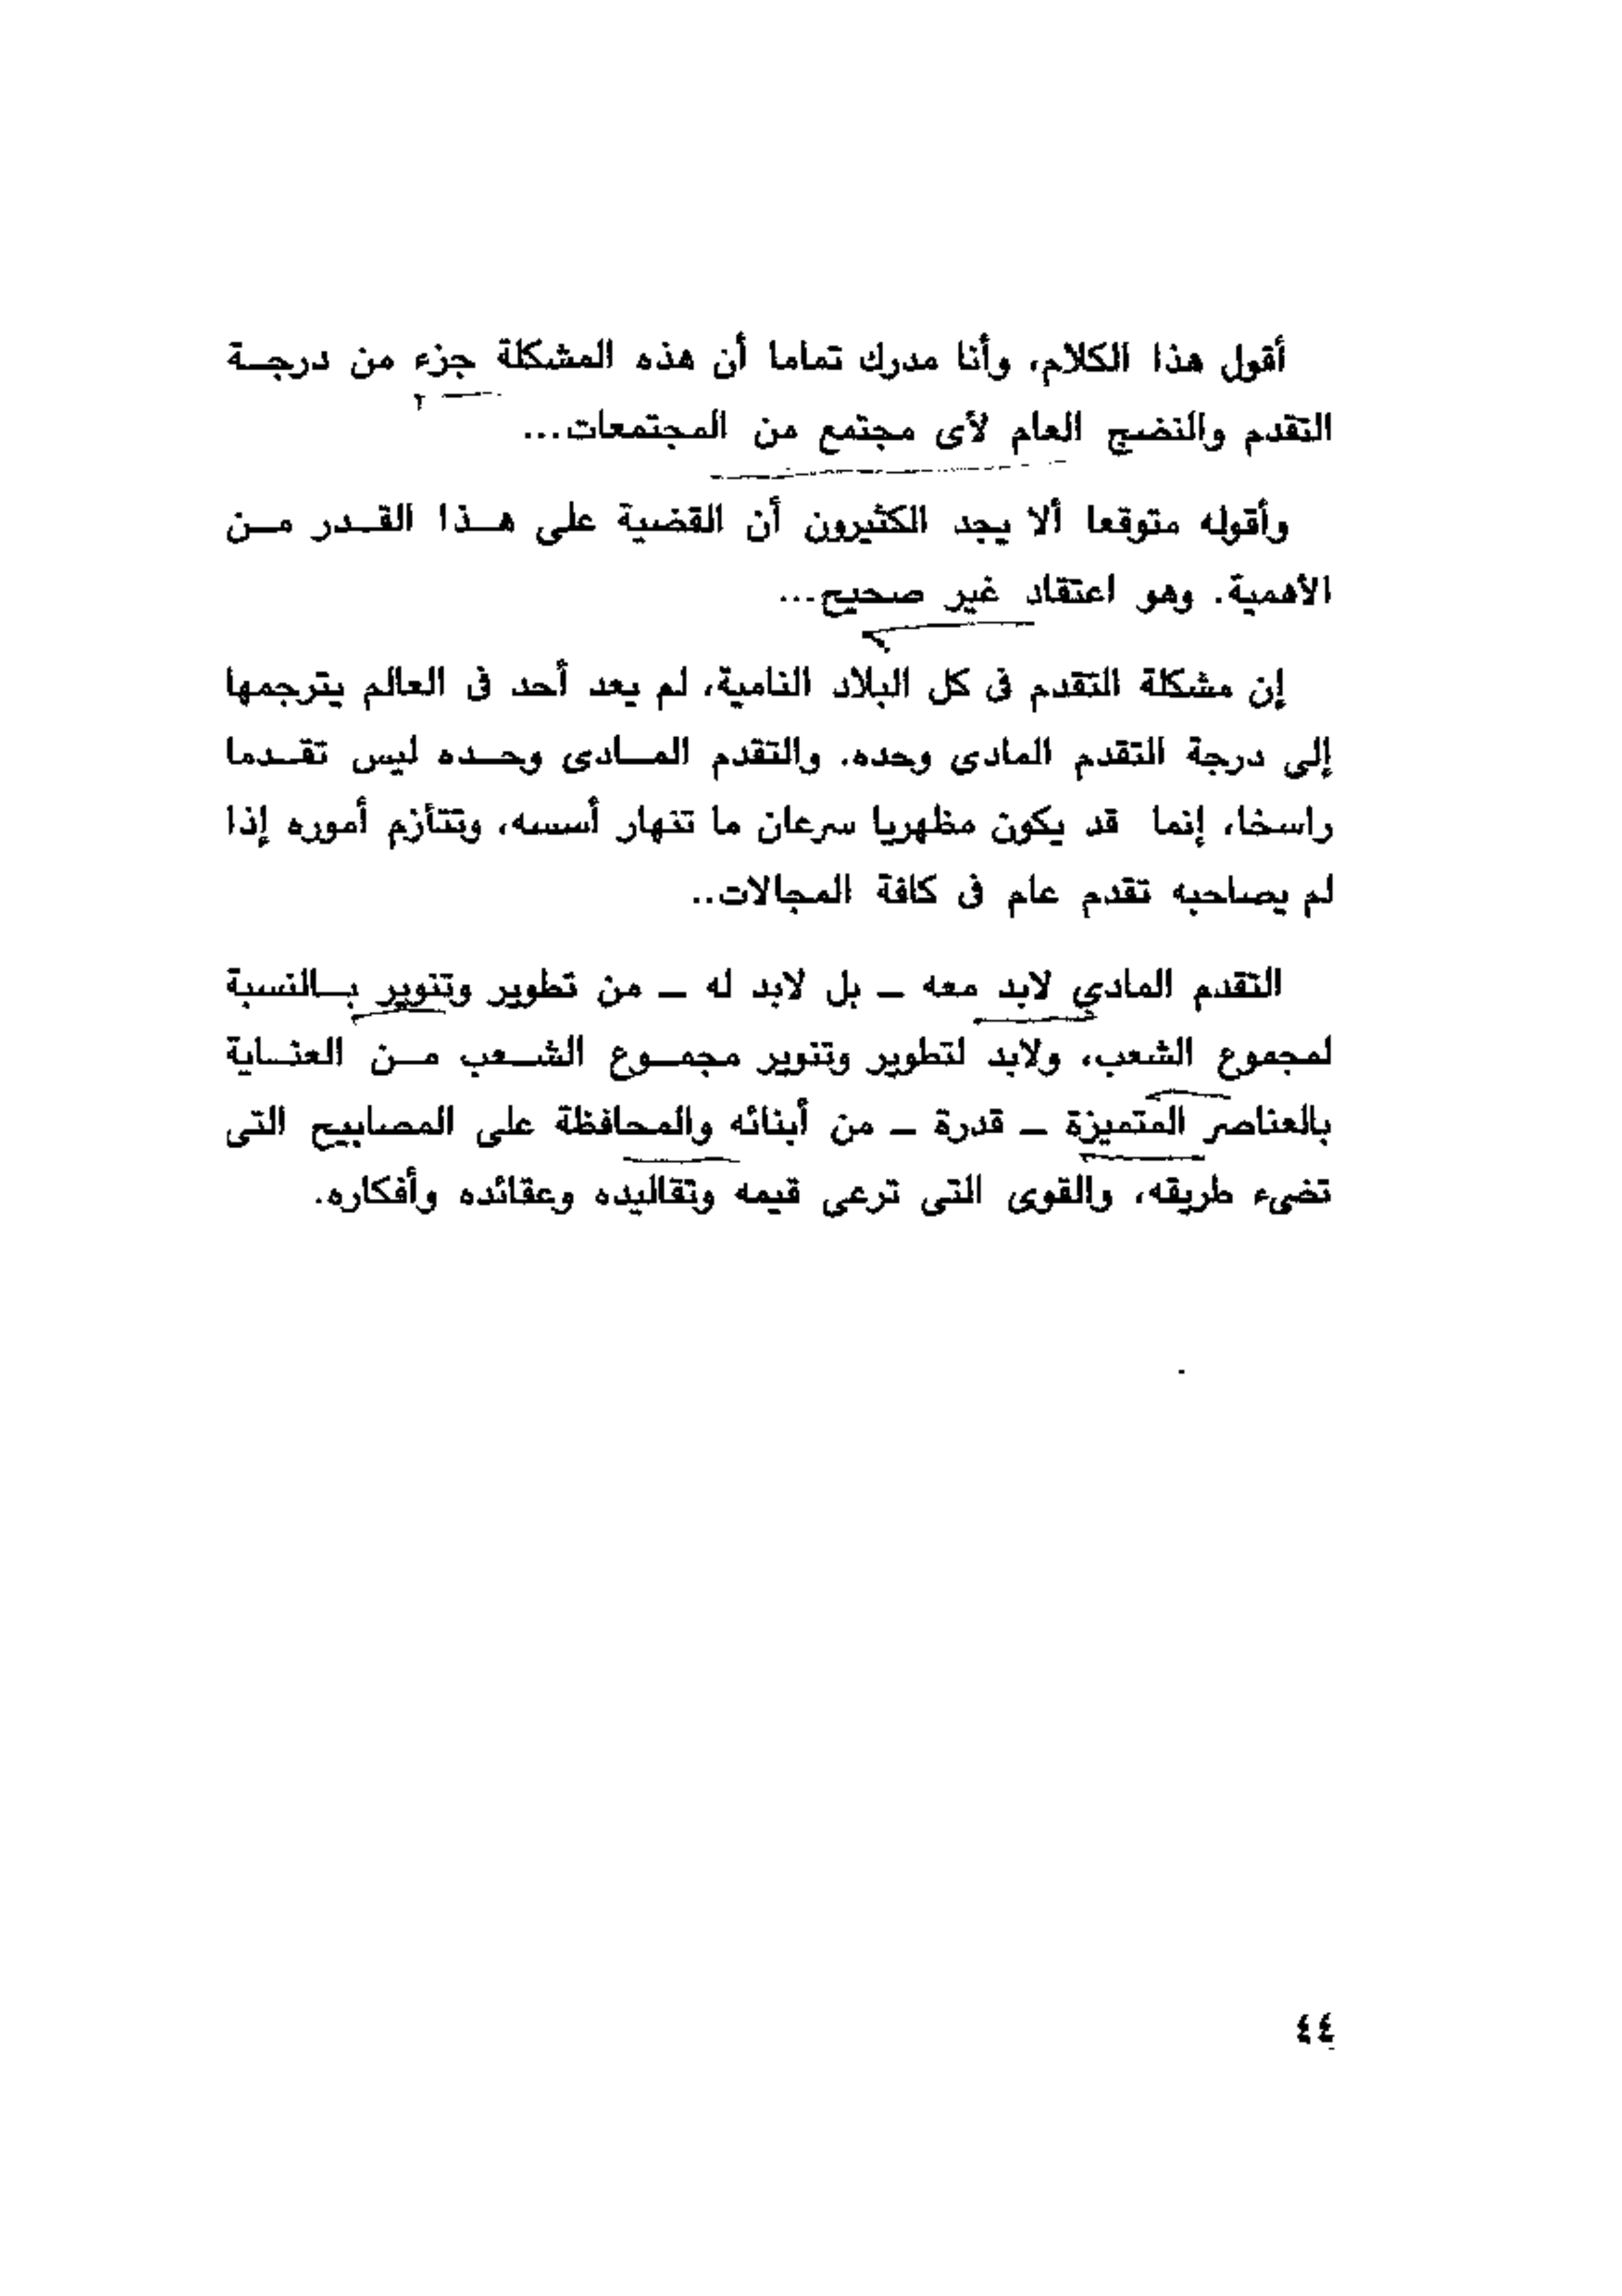 أقول هذا الكلام، وأنا مدرك تماما أن هذه المشكلة جزء من درجة
التقدم والنضج العام لأى مجتمع من المجتمعات...
وأقوله متوقعا ألا يجد الكثيرون أن القضية على هذا القدر من
الأهمية. وهو اعتقاد غير صحيح...
إن مشكلة التقدم فى كل البلاد النامية، لم يعد أحد فى العالم يترجمها
إلى درجة التقدم المادى وحده. والتقدم المادى وحده ليس تقدما
راسخا، إنما قد يكون مظهريا سرعان ما تنهار أسسه، وتتأزم أموره إذا
لم يصاحبه تقدم عام فى كافة المجالات..
التقدم المادي لابد معه - بل لابد له - من تطوير وتنوير بالنسبة
لمجموع الشعب، ولابد لتطوير وتنوير مجموع الشعب من العناية
بالعناصر المتميزة - قدرة - من أبنائه والمحافظة على المصابيح التى
تضىء طريقه، والقوى التى ترعى قيمه وتقاليده وعقائده وأفكاره.
٤٤